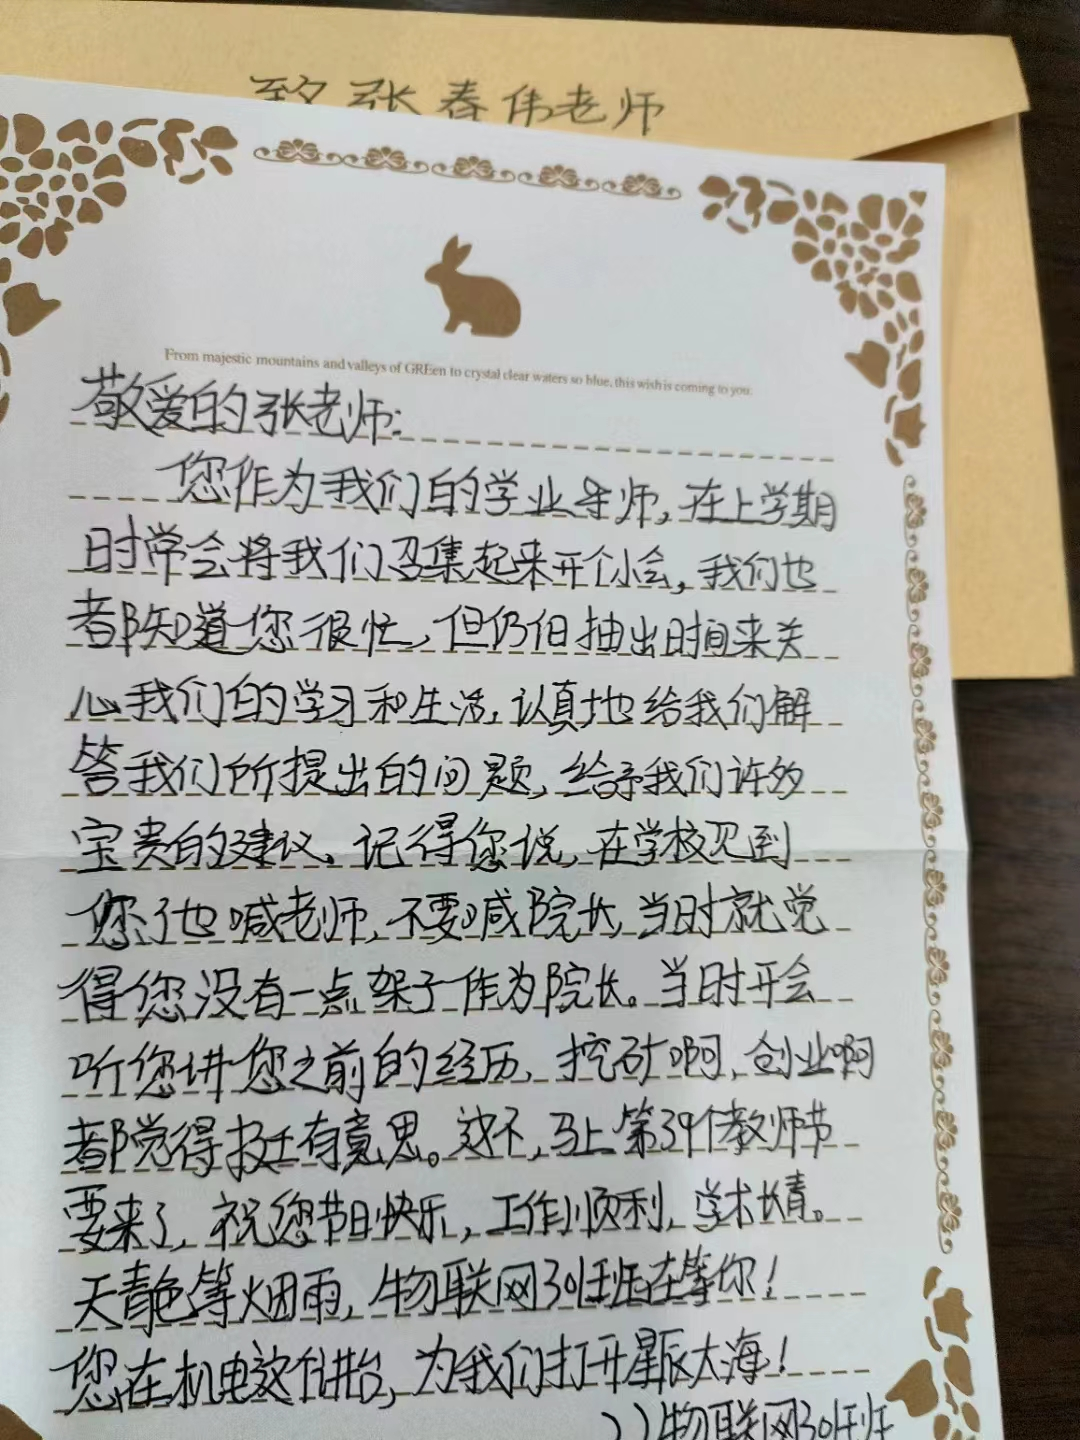 致张春伟老师
From majestic mountains and valleys of GREen to crystal clear waters so blue, this wish is coming to you.
敬爱的张老师:
您作为我们的学业导师,在上学期
时常会将我们召集起来开个小会,我们也
都知道您很忙,但仍旧抽出时间来关
心我们的学习和生活,认真地给我们解
答我们所提出的问题,给予我们许多
宝贵的建议。记得您说,在学校见到
您了也喊老师,不要喊院长,当时就觉
得您没有一点架子作为院长。当时开会
听您讲您之前的经历,挖矿啊,创业啊
都觉得挺有意思。这不,马上第39个教师节
要来了,祝您节日快乐,工作顺利,学术长青。
天青色等烟雨,物联网301班在等你!
您在机电这個讲台,为我们打开星辰大海!
物联网301班